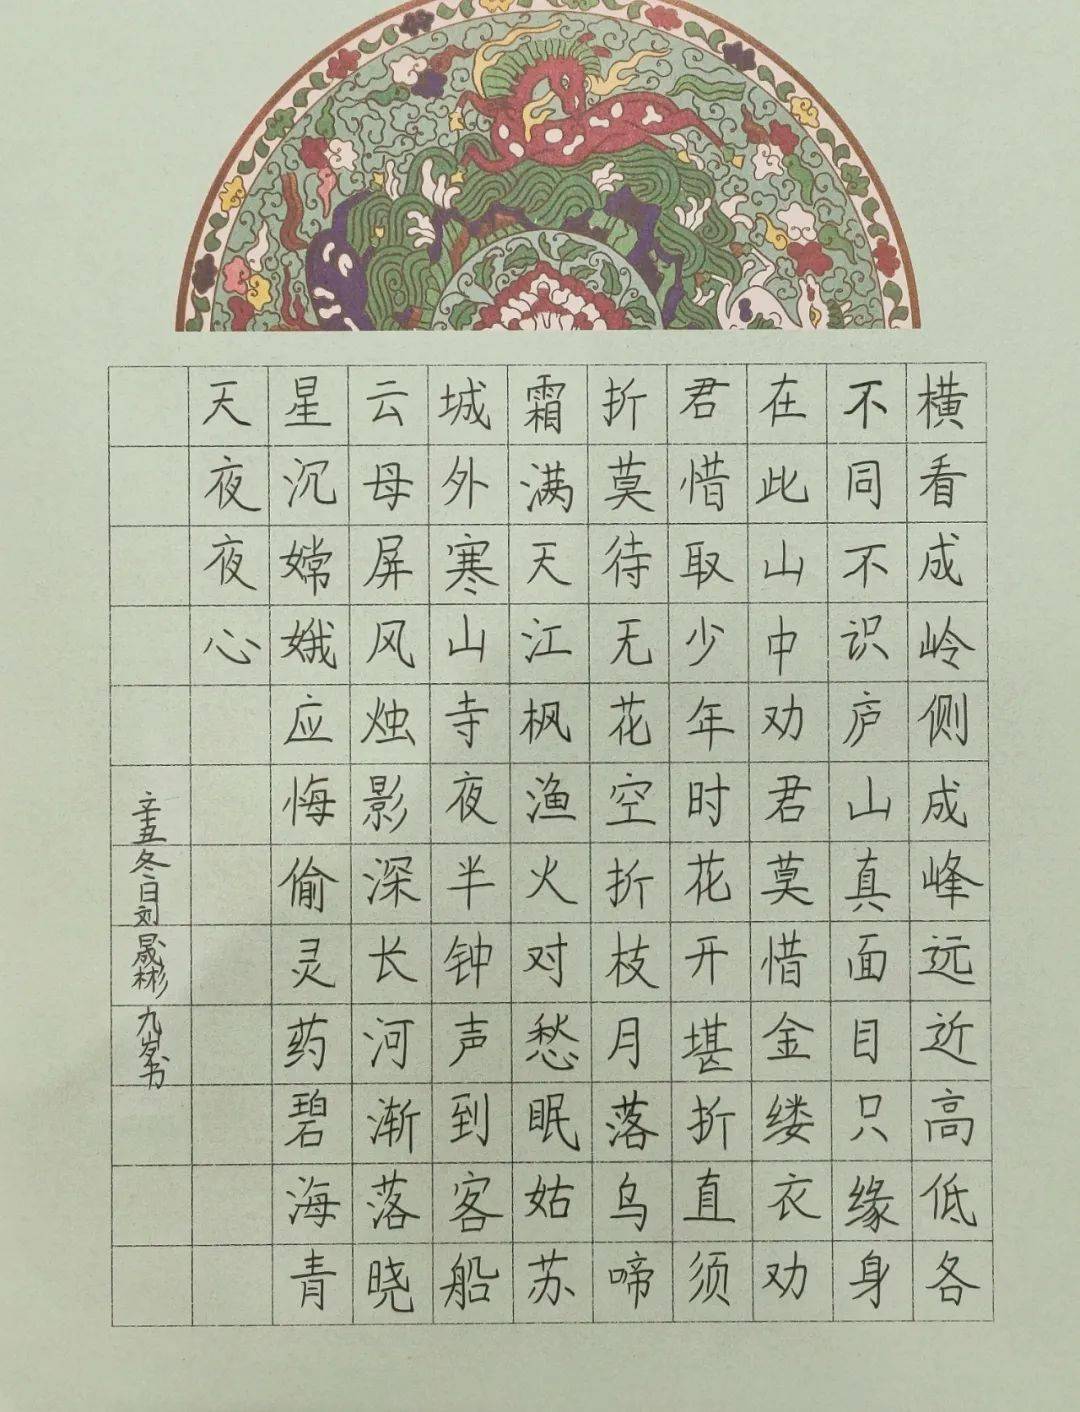 横看成岭侧成峰远近高低各
不同不识庐山真面目只缘身
在此山中劝君莫惜金缕衣劝
君惜取少年时花开堪折直须
折莫待无花空折枝月落乌啼
霜满天江枫渔火对愁眠姑苏
城外寒山寺夜半钟声到客船
云母屏风烛影深长河渐落晓
星沉嫦娥应悔偷灵药碧海青
天夜夜心
辛丑冬日刘晟彬九岁书